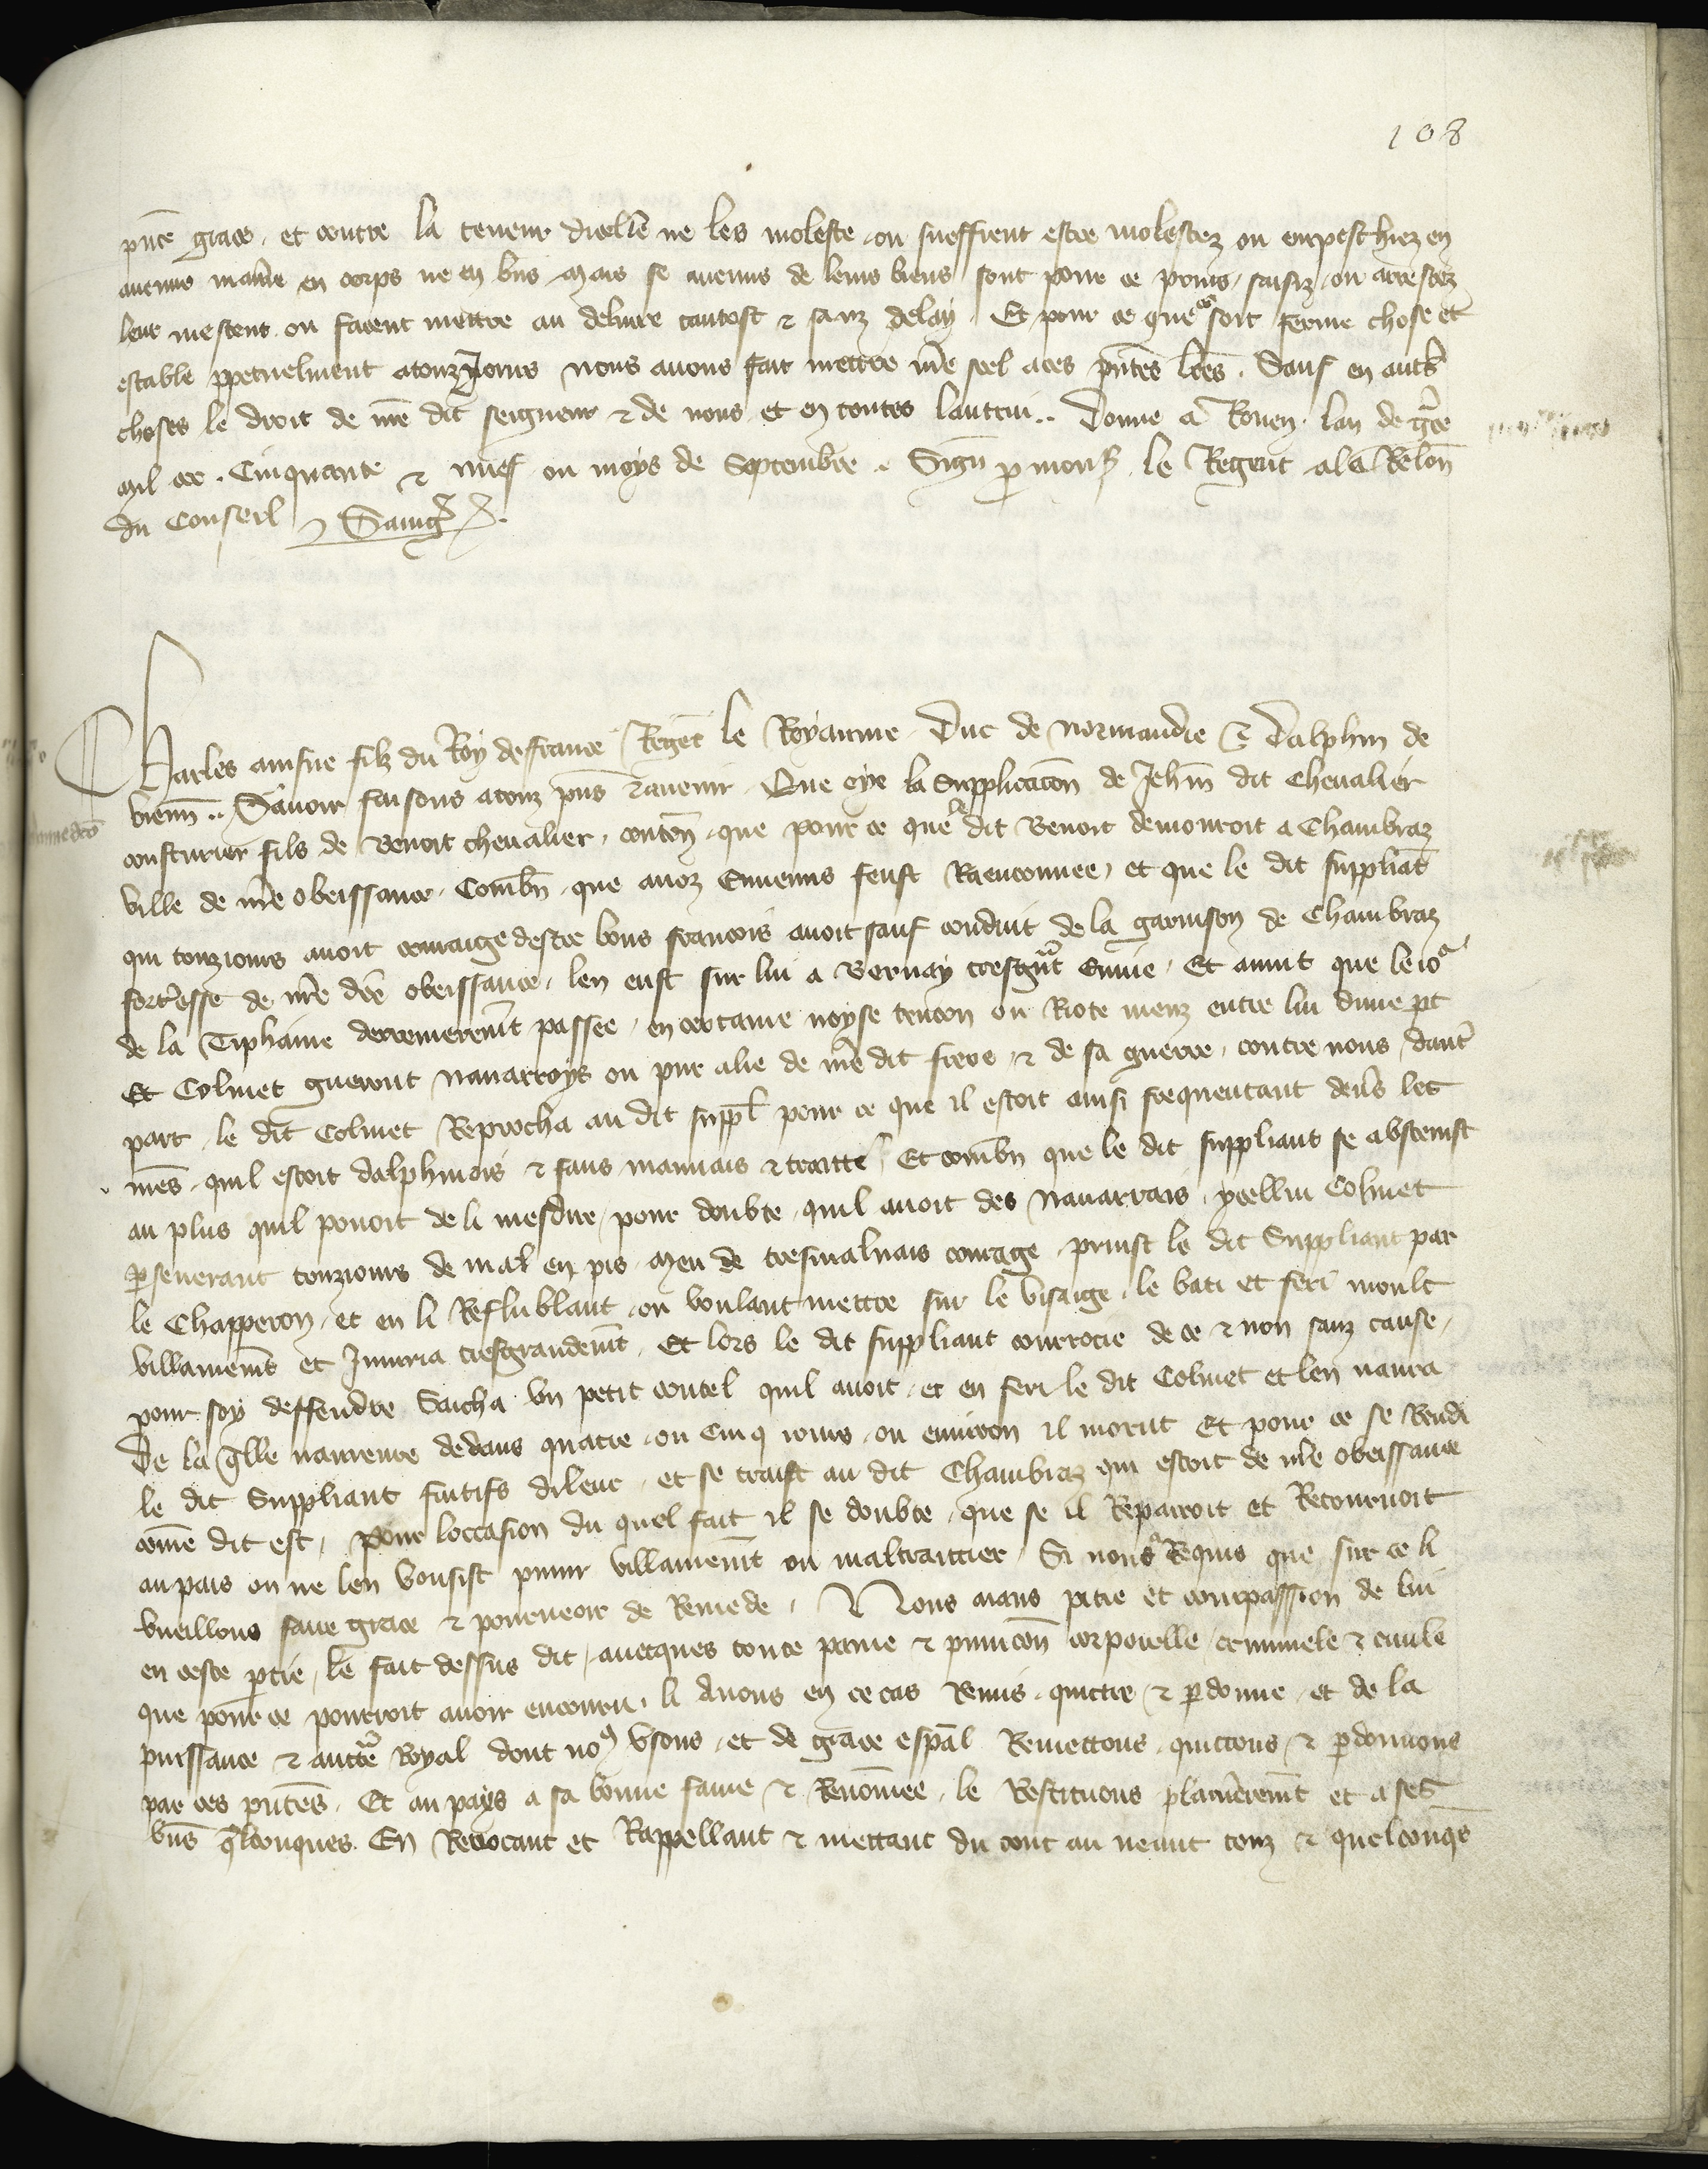 108
pnce grace . et contre la teneur dicelle ne les moleste . ou sueffrent estre molestez ou empeschiez en
aucune maniere en corps ne en bns . Mais se aucuns de leurs biens sont pour ce prins / saisiz ou arrestez
leur mettent . ou facent mettre au delivre tantost & sanz delay . Et pour ce que soit ferme chose et
estable ppetuelment atouz Jours nous avons fait mettre nre seel aces pntes lres . Sauf en autres
choses le droit de nre dit seigneur & de nous et en toutes lautrui .. Donne a Rouen . lan de gce
Mil ccc . Cinquante & nuef ou moys de Septembre . Sign par mons . le Regent a la Relon
du Conseil
Charles ainsne filz du Roy de france Regent le Royaume . Duc de normandie & Dalphin de
vienn .. Savoir faisons atouz pns & avenir . Que oye la Supplicacon de Jehan dit Chevalier
cousturier fils de Benoit chevalier . conten . que pour ce que le dit Benoit demouroit a Chambraz
ville de nre obeissance . Combn . que avoz Ennemis feust Raenconnee , et que le dit suppliat
qui touziours avoit couraige destre bons francois avoit sauf conduit de la garnison de Chambraz
forteresse de nre dce obeissance . len eust sur lui a Bernay tresgnt Envie . Et avint que le jour
de la Tiphaine derrenierement passee , en certaine noyse tencon ou Riote meuz entre lui dune pt
Et Colinet guerout navarroys ou pur alie de nre dit frere & de sa guerre , contre nous , dautre
part . le dit Colinet Reprocha au dit suppl pour ce que il estoit ainsi frequentant devers les
nres . quil estoit dalphinois & faus mauvais & traitte / Et combn que le dit suppliant se abstenist
au plus quil povoit de li mesdire / pour doubte . quil avoit des navarrais . ycellui Colinet
perseverant touziours de mal en pis . Meu de tresmalvais courage . prinst le dit Suppliant par
le Chapperon . et en li Reflublant . ou voulant mettre sur le visaige . le bati et feri moult
villainement et Iniuria tresgrandement . Et lors le dit suppliant courrocie de ce & non sanz cause ,
pour soy deffendre Saicha un petit coutel quil avoit . et en feri le dit Colinet et len navra
De la qlle navreure dedans quatre . ou Cinq jours . ou environ il morut Et pour ce se Rendi
le dit Suppliant fuitifs dileuc . et se traist au dit Chambraz qui estoit de nre obeissance
come dit est , pour loccasion du quel fait il se doubte . que se il Repairoit et Retournoit
au pais on ne len vousist punir villainement ou maltraittier . Si nous Requis que sur ce li
vueillons faire grace & pourveoir de Remede . Nous aians pitie et compassion de lui
en ceste ptie , le fait dessus dit . avecques toute peine & punicon corporelle / criminele & civile
que pour ce pourroit avoir encouru . li Avons en ce cas Remis . quittie & pardonne . et de la
puissance & auctte Royal dont nous usons . et de grace espal Remettons . quittons & pardonnons
par ces pntes . Et au pays a sa bonne fame & Renomee . le Restituons plainierement et a ses
bns qlconques . En Revocant et Rappellant & mettant du tout au neant touz & quelconqs